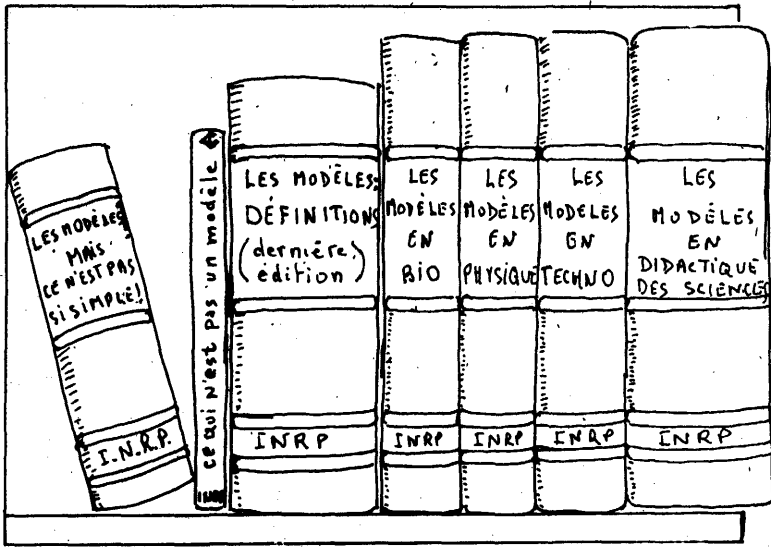 LES MODÈLES
MAIS
CE N'EST PAS
SI SIMPLE!
I.N.R.P.
ce qui N'est pas un modèle
INRP
LES MODÈLES:
DÉFINITIONS
(dernière
édition)
INRP
LES
MODÈLES
EN
BIO
INRP
LES
MODÈLES
EN
PHYSIQUE
INRP
LES
MODELES
EN
TECHNO
INRP
LES
MODÈLES
EN
DIDACTIQUE
DES SCIENCES
INRP